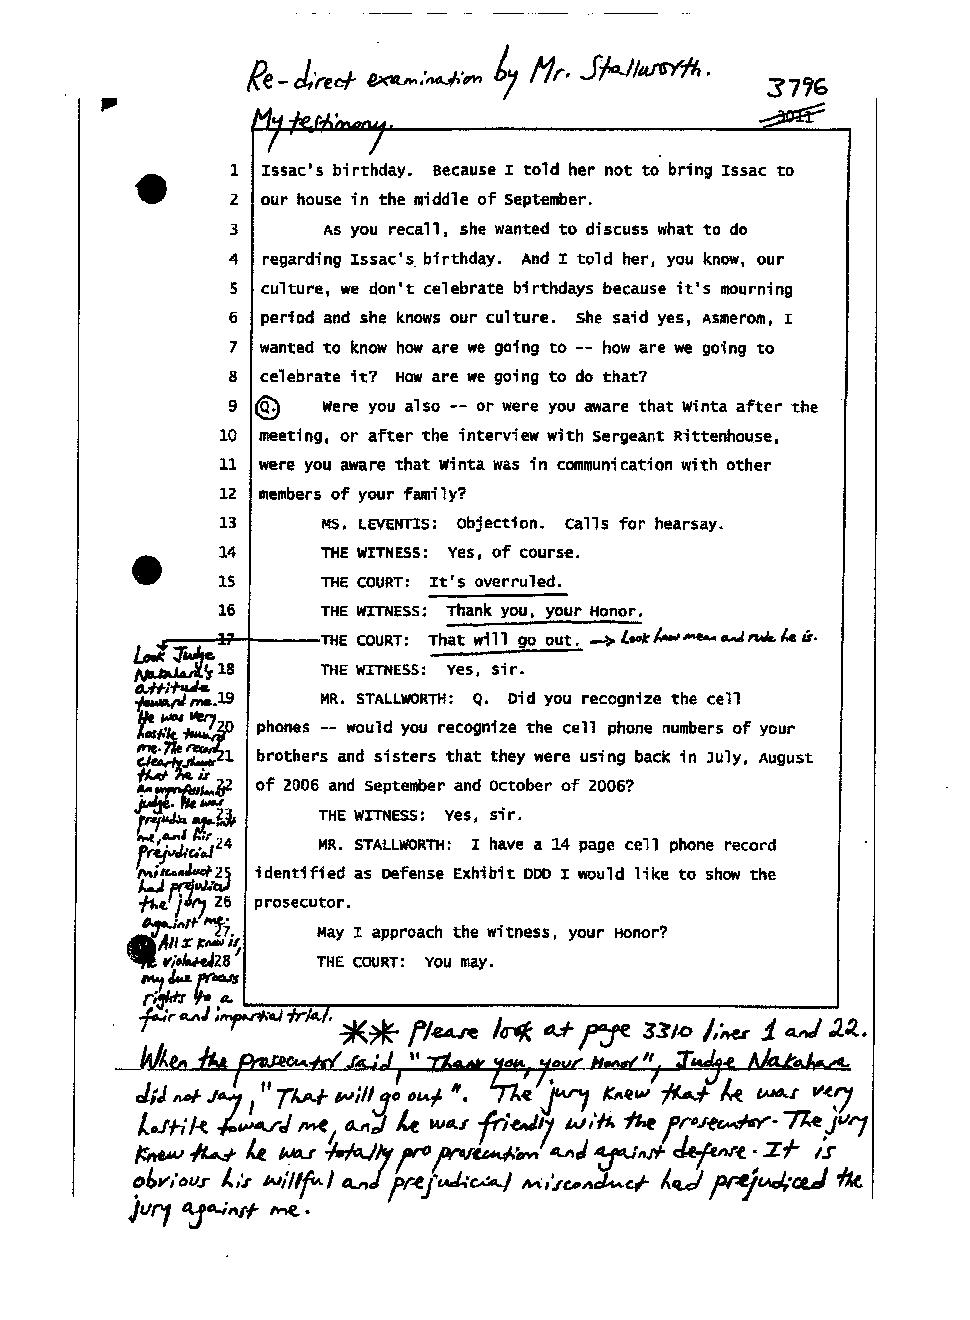 Re-direct examination by Mr. Stallworth.
3796
3011
My testimony.
1 Issac's birthday. Because I told her not to bring Issac to
2 our house in the middle of September.
3 As you recall, she wanted to discuss what to do
4 regarding Issac's birthday. And I told her, you know, our
5 culture, we don't celebrate birthdays because it's mourning
6 period and she knows our culture. She said yes, Asmerom, I
7 wanted to know how are we going to -- how are we going to
8 celebrate it? How are we going to do that?
9 Q. Were you also -- or were you aware that Winta after the
10 meeting, or after the interview with Sergeant Rittenhouse,
11 were you aware that Winta was in communication with other
12 members of your family?
13 MS. LEVENTIS: Objection. Calls for hearsay.
14 THE WITNESS: Yes, of course.
15 THE COURT: It's overruled.
16 THE WITNESS: Thank you, your Honor.
17 THE COURT: That will go out. → Look how mean and rude he is.
18 THE WITNESS: Yes, sir.
19 MR. STALLWORTH: Q. Did you recognize the cell
20 phones -- would you recognize the cell phone numbers of your
21 brothers and sisters that they were using back in July, August
22 of 2006 and September and October of 2006?
23 THE WITNESS: Yes, sir.
24 MR. STALLWORTH: I have a 14 page cell phone record
25 identified as Defense Exhibit DDD I would like to show the
26 prosecutor.
27 May I approach the witness, your Honor?
28 THE COURT: You may.
Look Judge
Nakahara's
attitude
toward me.
He was very
hostile toward
me. The record
clearly shows
that he is
an unprofessional
judge. He was
prejudice against
me, and his
prejudicial
misconduct
had prejudiced
the jury
against me.
All I know is,
he violated
my due process
rights to a
fair and impartial trial.
** Please look at page 3310 lines 1 and 22.
When the prosecutor said, "Thank you, your Honor", Judge Nakahara
did not say, "That will go out". The jury knew that he was very
hostile toward me, and he was friendly with the prosecutor. The jury
knew that he was totally pro prosecution and against defense. It is
obvious his willful and prejudicial misconduct had prejudiced the
jury against me.